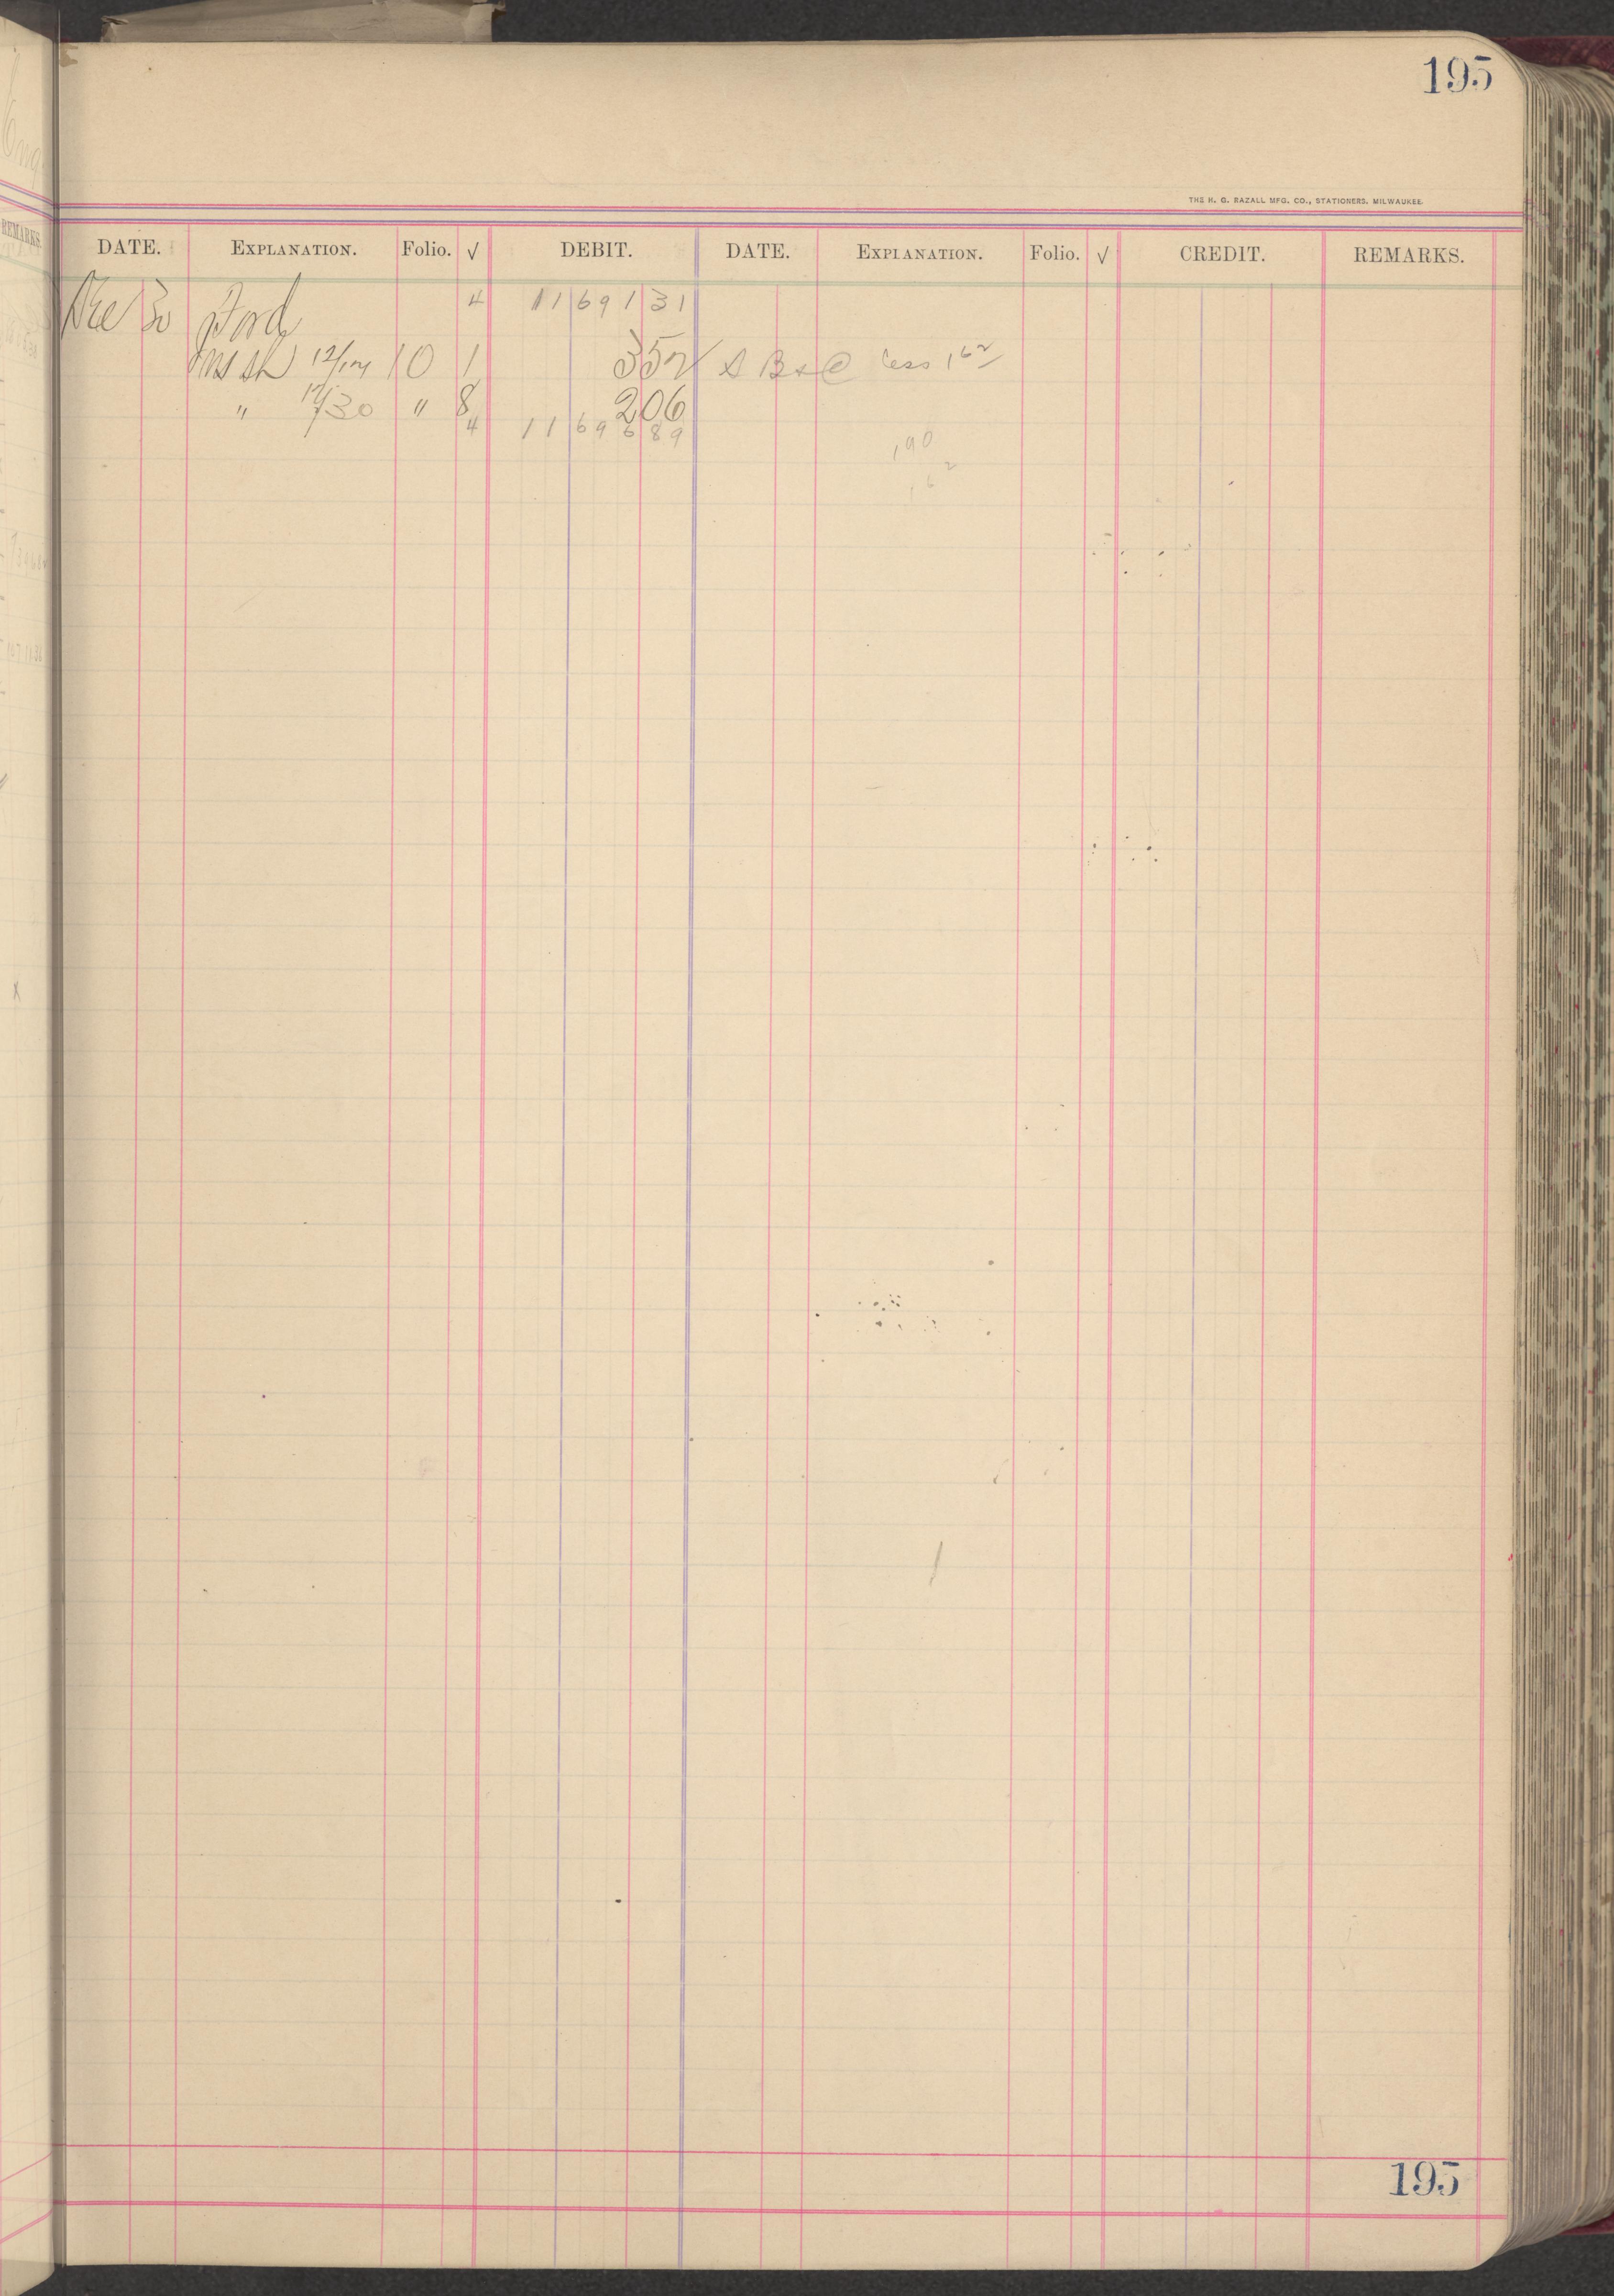 195
THE H. G. RAZALL MFG. CO., STATIONERS, MILWAUKEE.
REMARKS.
DATE. EXPLANATION. Folio. √ DEBIT. DATE. EXPLANATION. Folio. √ CREDIT. REMARKS.
Dec 30 Ford 4 11 69 1 31
12/14 10 1 352 less 162
" 12/30 " 8 206
4 11 69 6 89
190
62
195